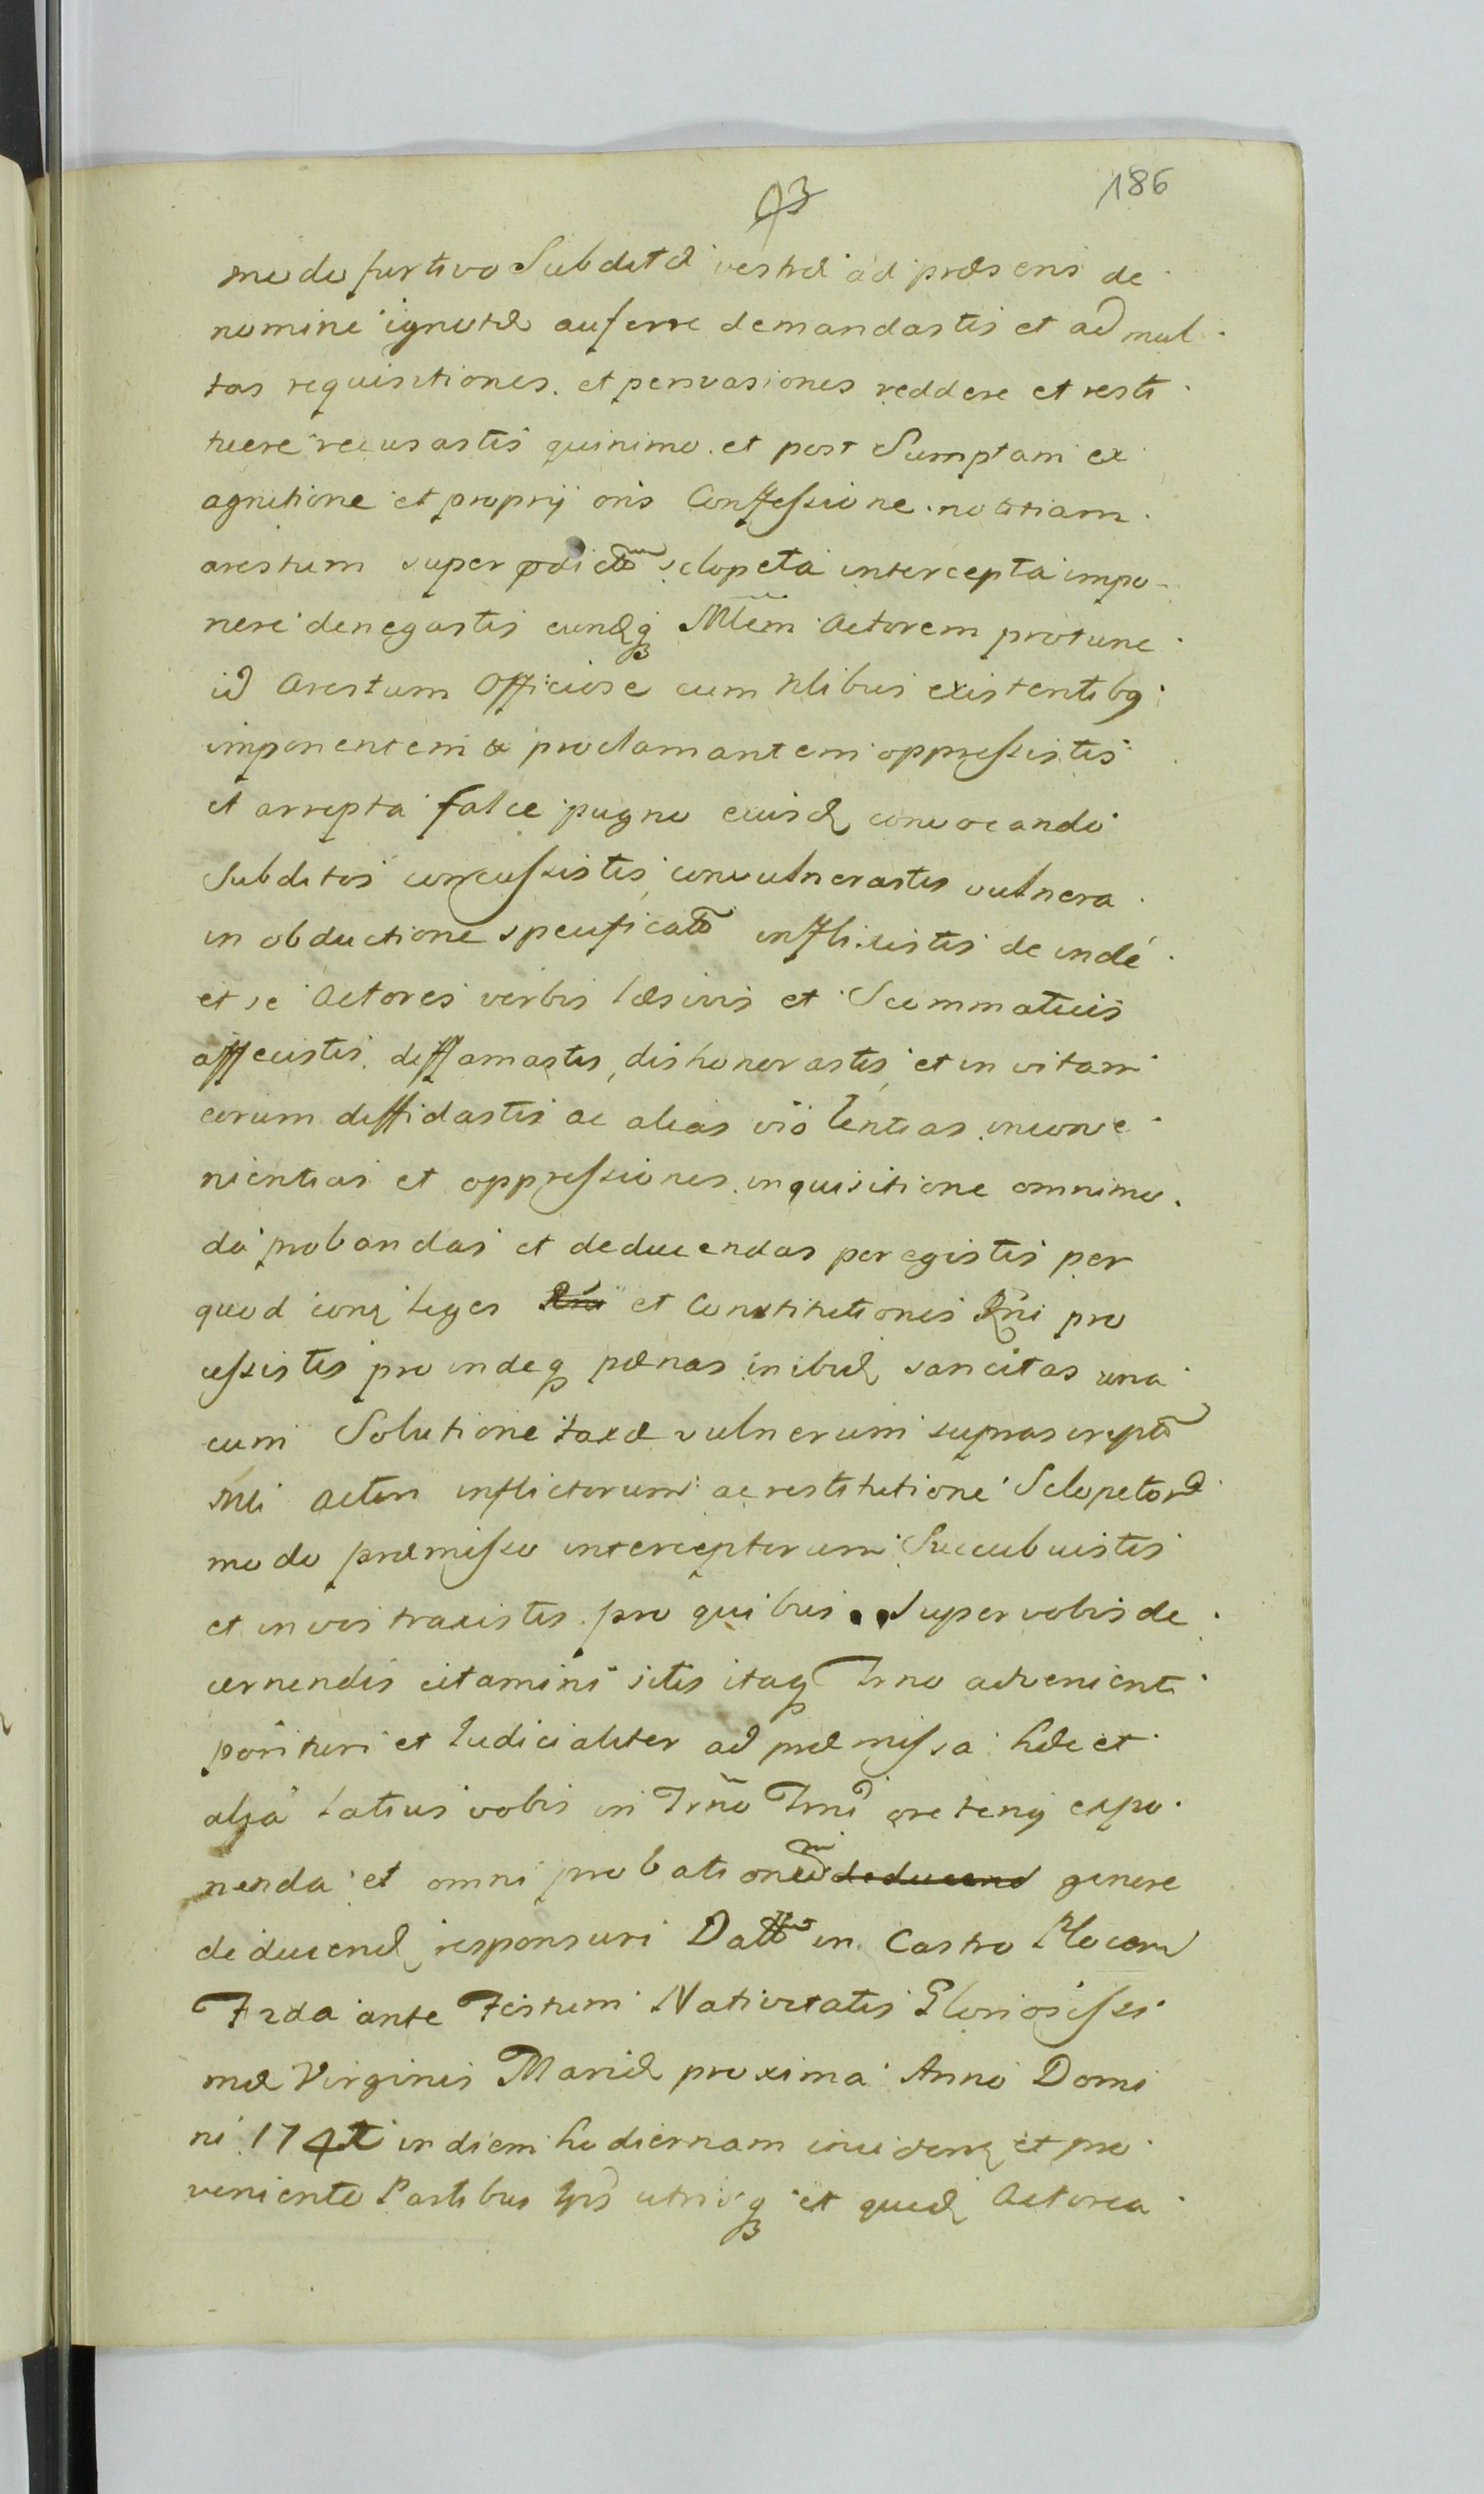 93
186
modo furtivo Subditæ vestræ ad præsens de
nomine ignotæ auferre demandastis et ad mul
tas requisitiones et persvasiones reddere et resti
tuere recusastis quinimo et post Sumptam ex
agnitione et proprij oris Confessione notitiam
arestum super pdictu sclopeta intercepta impo-
nere denegastis eundqz Mlem Actorem protunc
id Arestum Officiose cum Nlibus existentibg
imponentem & proclamantem oppressistis
et arrepta falce pugno eiusd convocando
Subditos concussistis, convulnerastis vulnera
in obductione specificato inflixistis de inde
et se Actores verbis læsivis et Scommaticis
affecistis deffamastis, dishonorastis, et in vitam
eorum diffidastis ac alias violentias inconve
nientias et oppressiones inquisitione omnimo
da probandas et deducendas peregistis per
quod conz leges et Constitutiones Rni pro
cessistis pro indeq pænas inibid sancitas una
cum Solutione taxæ vulnerum suprascripto
Mli Actori inflictorum ac restitutione Sclopetor
modo præmisso interceptorum Succubuistis
et in vos traxistis pro quibus Super vobis de
cernendis citamini sitis itaq Trno advenienti
parituri et Iudicialiter ad præmissa hæc et
alia latius vobis in Trno Trni oreteng expo
nenda et omni probationu deducend genere
deducend responsuri Datt in Castro Plocen
Frda ante Festum Nativitatis Gloriosissi
mæ Virginis Mariæ proxima Anno Domi
ni 174 in diem hodiernam inciden et pro
veniente Partibus Ips utrisqz et quid Actorea